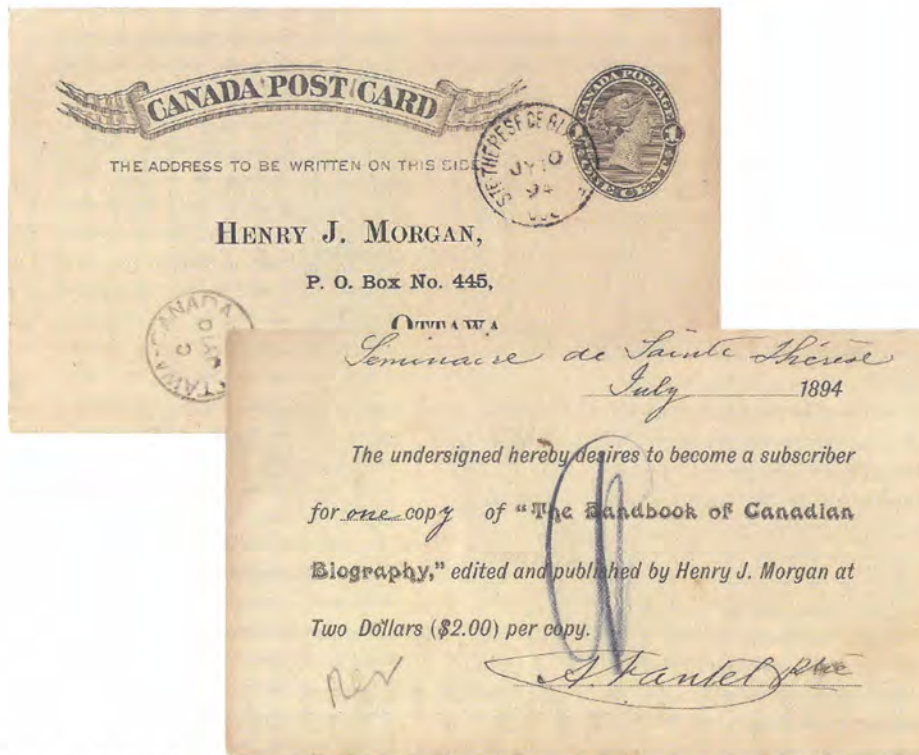 CANADA POST CARD
THE ADDRESS TO BE WRITTEN ON THIS SIDE
CANADA POSTAGE
STE. THERESE DE
JY 10
94
HENRY J. MORGAN,
P. O. Box No. 445,
OTTAWA
CANADA
Seminaire de Sainte Thérèse
July 1894
The undersigned hereby desires to become a subscriber
for one copy of "The Handbook of Canadian
Biography," edited and published by Henry J. Morgan at
Two Dollars ($2.00) per copy.
Rev